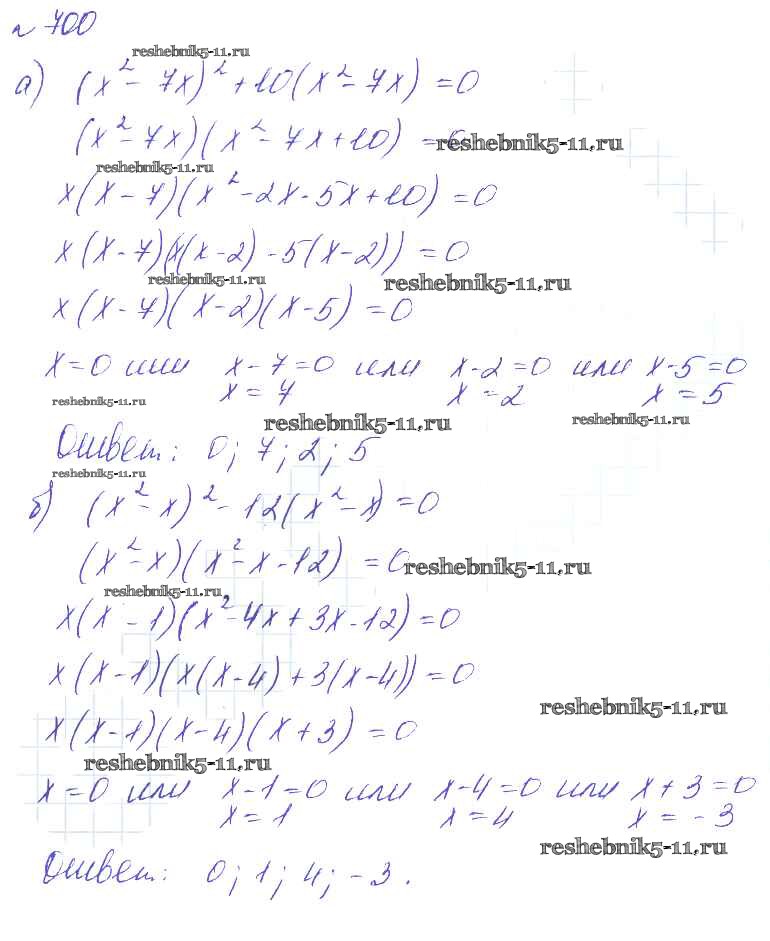 № 700
reshebnik5-11.ru
а) (x² - 7x)² + 10(x² - 7x) = 0
(x² - 7x)(x² - 7x + 10) = 0 reshebnik5-11.ru
reshebnik5-11.ru
x(x - 7)(x² - 2x - 5x + 10) = 0
x(x - 7)(x(x - 2) - 5(x - 2)) = 0
reshebnik5-11.ru reshebnik5-11.ru
x(x - 7)(x - 2)(x - 5) = 0
x = 0 или x - 7 = 0 или x - 2 = 0 или x - 5 = 0
x = 7 x = 2 x = 5
reshebnik5-11.ru reshebnik5-11.ru reshebnik5-11.ru
Ответ: 0; 7; 2; 5
reshebnik5-11.ru
б) (x² - x)² - 12(x² - x) = 0
(x² - x)(x² - x - 12) = 0 reshebnik5-11.ru
reshebnik5-11.ru
x(x - 1)(x² - 4x + 3x - 12) = 0
x(x - 1)(x(x - 4) + 3(x - 4)) = 0
reshebnik5-11.ru
x(x - 1)(x - 4)(x + 3) = 0
reshebnik5-11.ru
x = 0 или x - 1 = 0 или x - 4 = 0 или x + 3 = 0
x = 1 x = 4 x = - 3
reshebnik5-11.ru
Ответ: 0; 1; 4; -3.